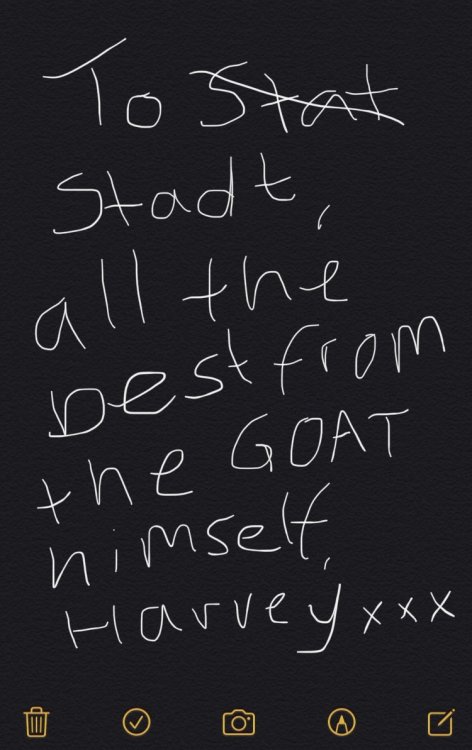 To Stat
Stadt,
all the
best from
the GOAT
himself,
Harvey xxx